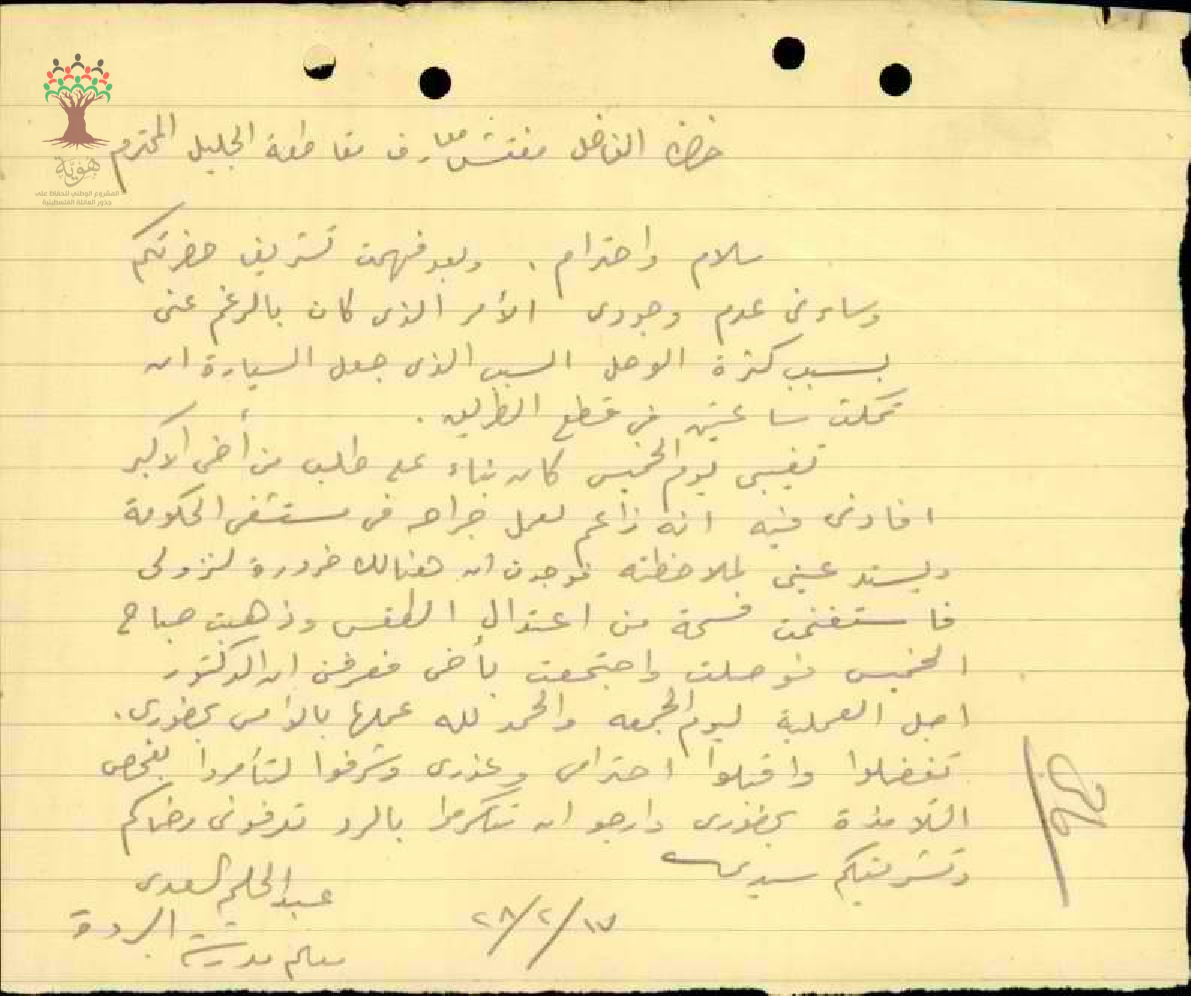 هوية
المشروع الوطني للحفاظ على
جذور العائلة الفلسطينية
حضرة الفاضل مفتش معارف مقاطعة الجليل المحترم
سلام واحترام . وبعد فهمت تشريف حضرتكم
وساءني عدم وجودي الأمر الذي كان بالرغم عني
بسبب كثرة الوحل السبب الذي جعل السيارة ان
تمكث ساعتين في قطع الطريق .
تغيبي يوم الخميس كان بناء على طلب من أخي الاكبر
افادني فيه انه زاعم لعمل جراحه في مستشفى الحكومة
ويستدعيني لملاحظته فوجدت ان هنالك ضرورة لنزولي
فاستغنمت فسحة من اعتدال الطقس وذهبت صباح
الخميس فوصلت واجتمعت بأخي فعرفني ان الدكتور
اجل العملية ليوم الجمعه والحمد لله عملها بالأمس بحضوري .
تفضلوا واقبلوا احترامي وعذري وشرفوا لتأمروا بفحص
التلامذة بحضوري وارجو ان تتكرموا بالرد تعرفوني رضاكم
وتشريفكم سيدي
عبد الحليم السعدي
معلم مدرسة
٢٨/٢/١٧